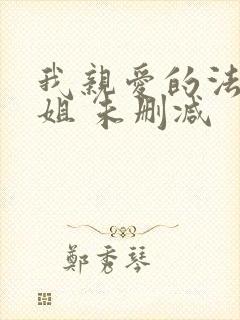 我親愛的法
姐 未删减
鄭秀琴